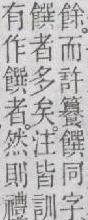 餘。而許籑饌同字
饌者多矣。注皆訓
有作饌者。然則禮